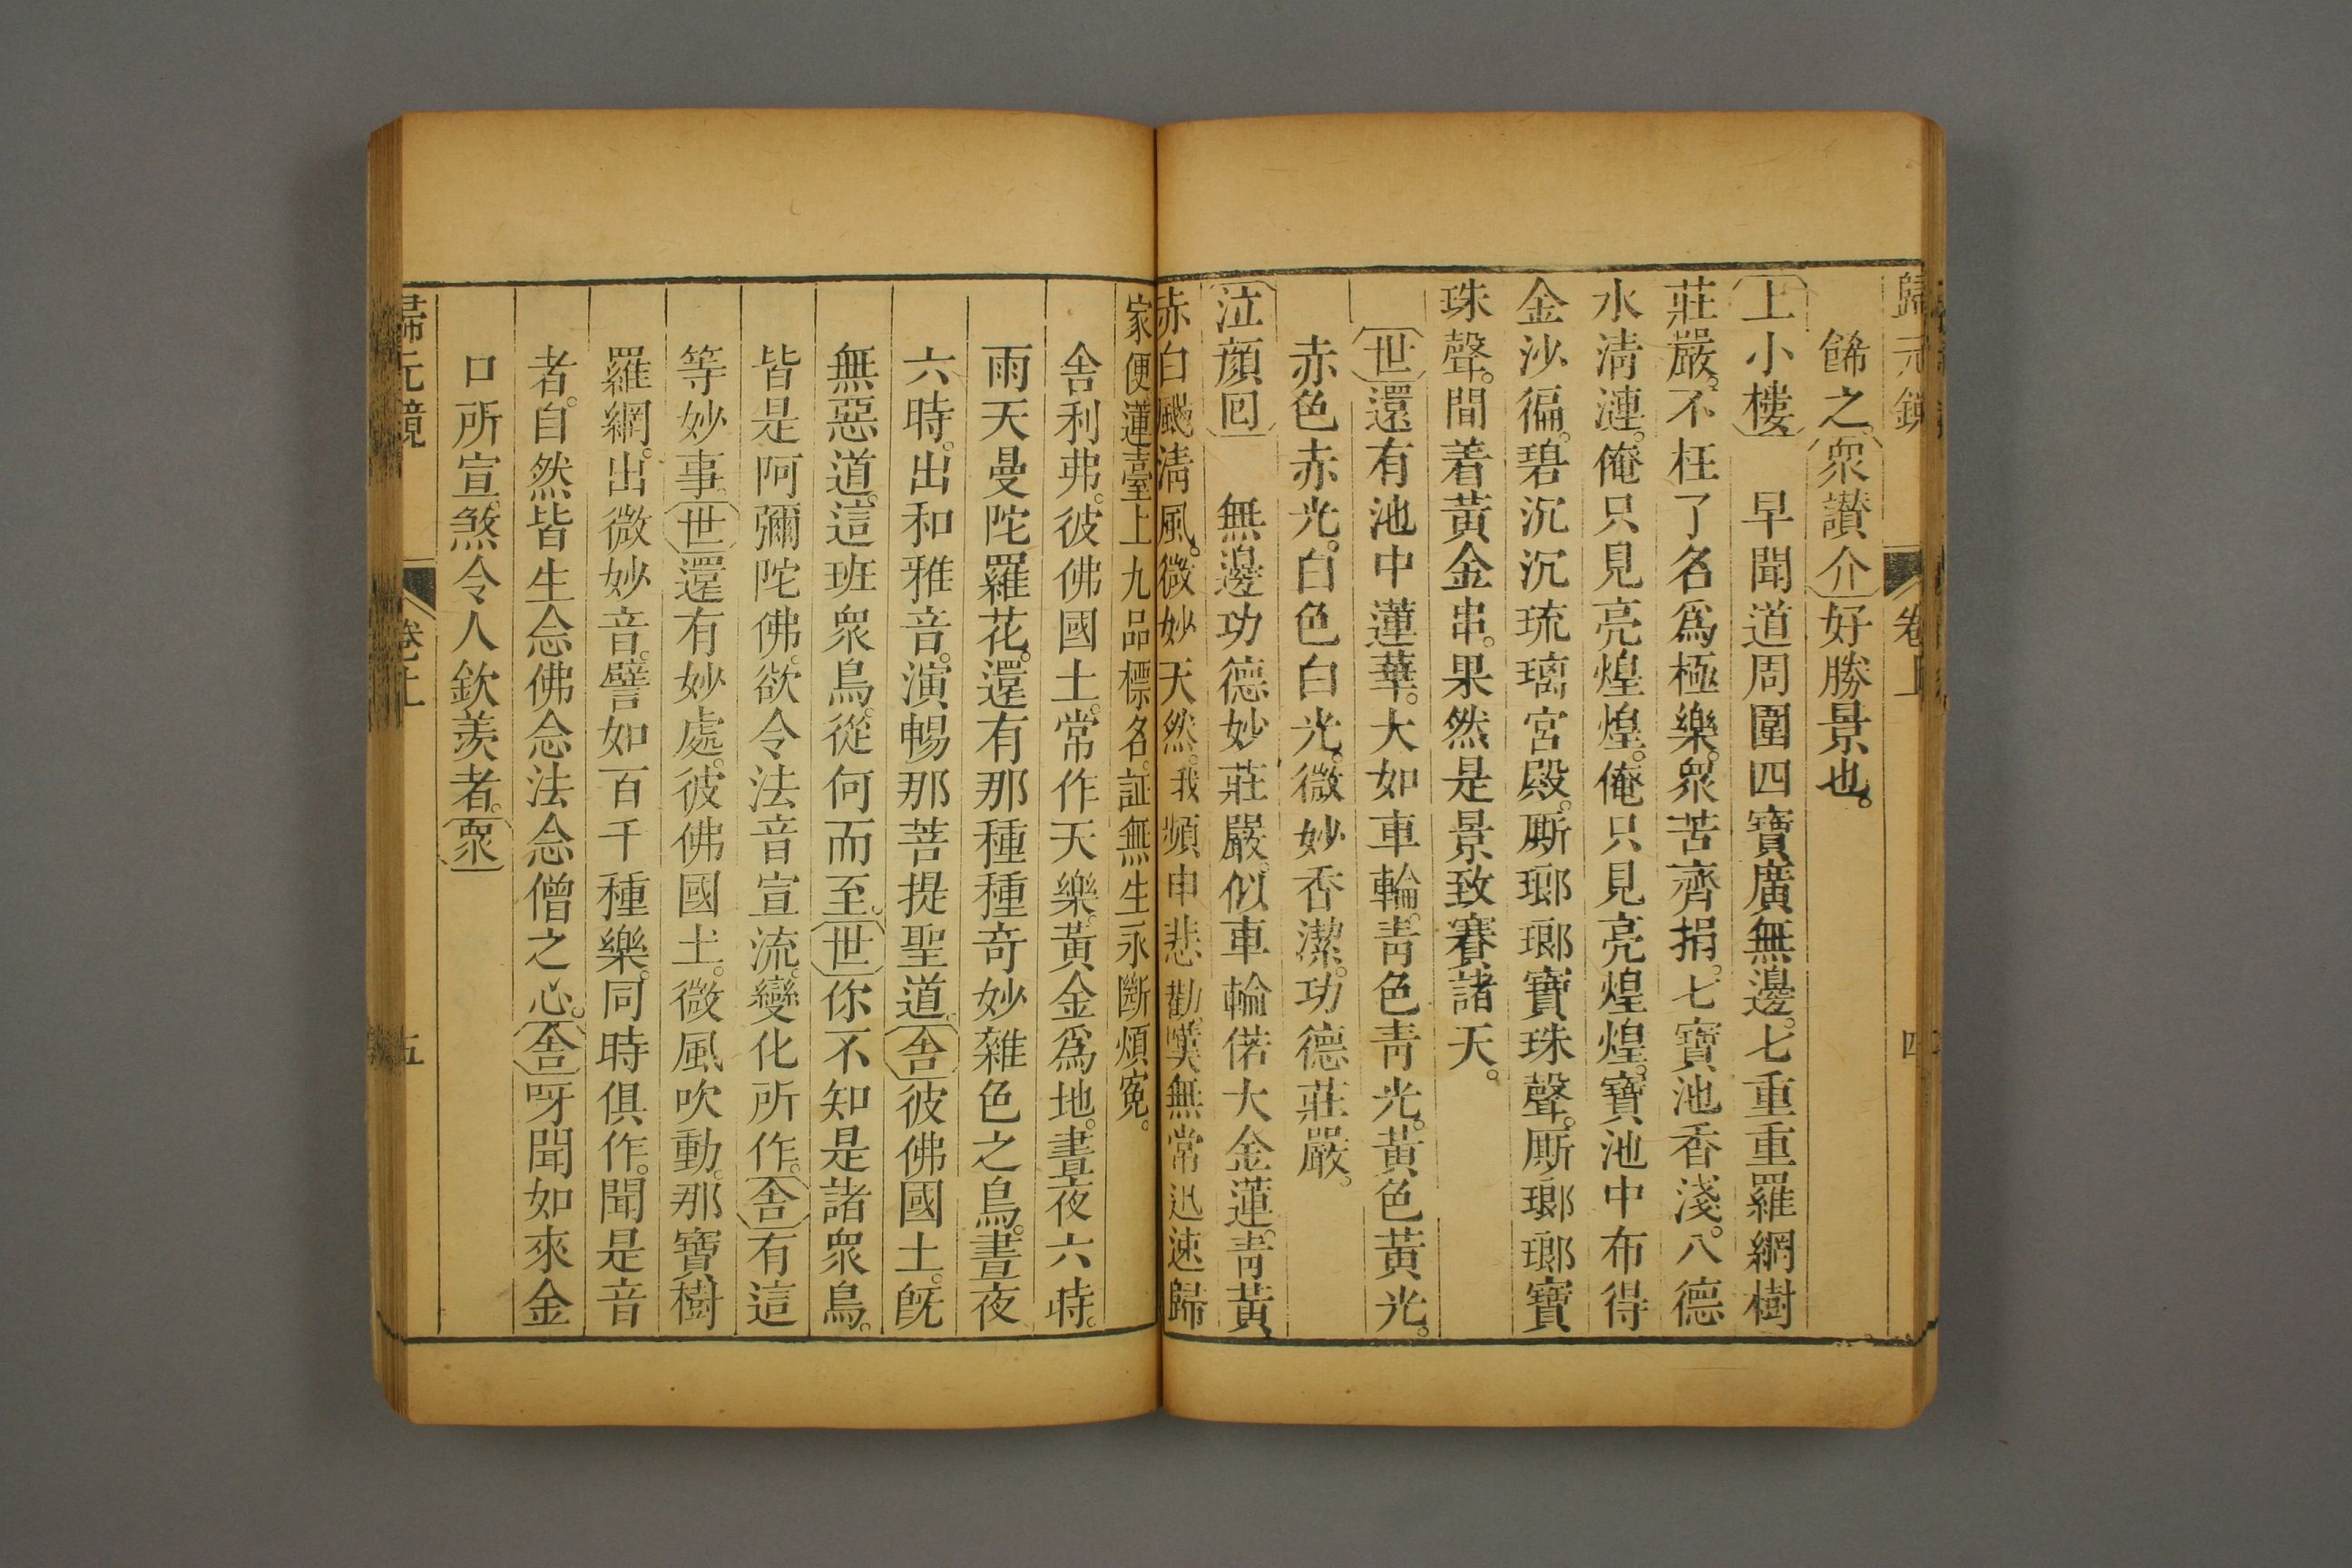 歸元鏡 卷上 四
餙之。衆讃介好勝景也。
上小樓 早聞道周圍四寶廣無邊。七重重羅網樹
莊嚴。不枉了名爲極樂。衆苦齊捐。七寶池香淺。八德
水淸漣。俺只見亮煌煌。俺只見亮煌煌。寶池中布得
金沙徧。碧沉沉琉璃宮殿。厮瑯瑯寶珠聲。厮瑯瑯寶
珠聲。間着黃金串。果然是景致賽諸天。
世還有池中蓮華。大如車輪。靑色靑光。黃色黃光。
赤色赤光。白色白光。微妙香潔。功德莊嚴。
泣顔回 無邊功德妙莊嚴。似車輪偌大金蓮。靑黃
赤白颰淸風。微妙天然。我頻申悲勸。嘆無常迅速歸
家便蓮臺上九品標名。証無生永斷煩寃。
舎利弗。彼佛國土。常作天樂。黃金爲地。晝夜六時。
雨天曼陀羅花。還有那種種奇妙雜色之鳥。晝夜
六時。出和雅音。演暢那菩提聖道。舎彼佛國土。旣
無惡道。這班衆鳥。從何而至。世你不知是諸衆鳥。
皆是阿彌陀佛。欲令法音宣流。變化所作。舎有這
等妙事。世還有妙處。彼佛國土。微風吹動。那寶樹
羅網。出微妙音。譬如百千種樂。同時俱作。聞是音
者。自然皆生念佛念法念僧之心。舎呀聞如來金
口所宣。煞令人欽羡者。衆
歸元鏡 卷上 五